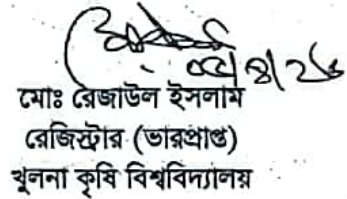 ০৮/৪/২৬
মোঃ রেজাউল ইসলাম
রেজিস্ট্রার (ভারপ্রাপ্ত)
খুলনা কৃষি বিশ্ববিদ্যালয়